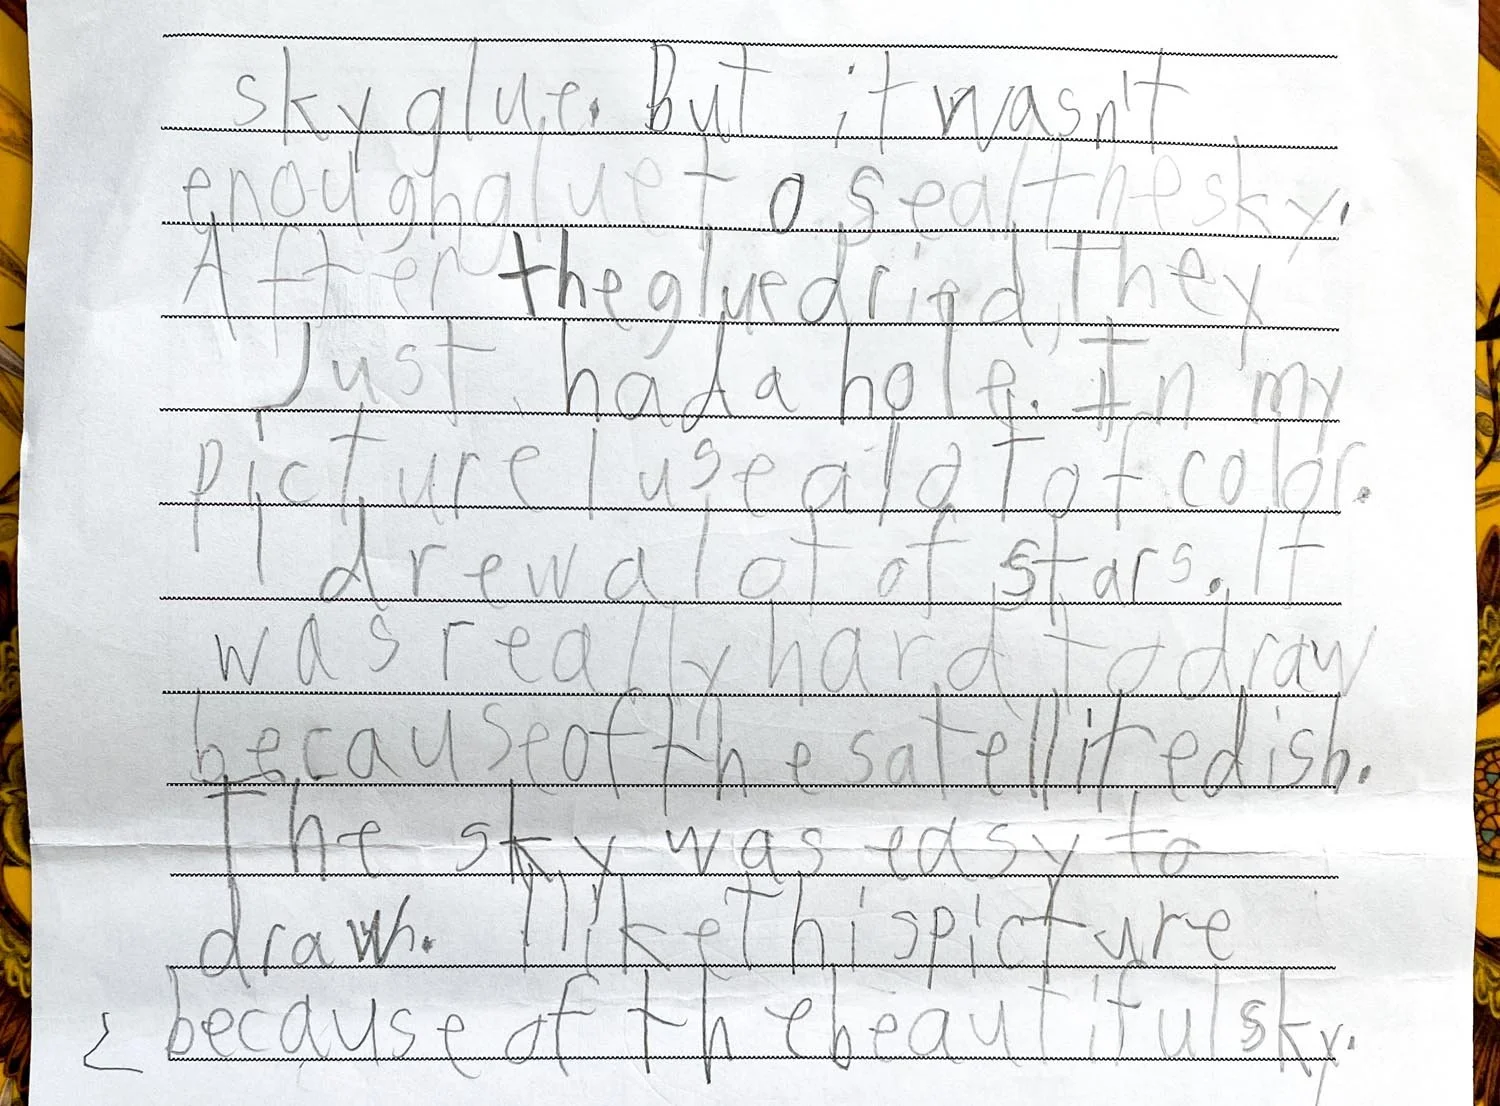 sky glue. But it wasn't
enough glue to seal the sky.
After the glue dried, they
Just had a hole. In my
picture I use a lot of color.
I drew a lot of stars. It
was really hard to draw
because of the satellite dish.
The sky was easy to
draw. I like This picture
because of the beautiful sky.